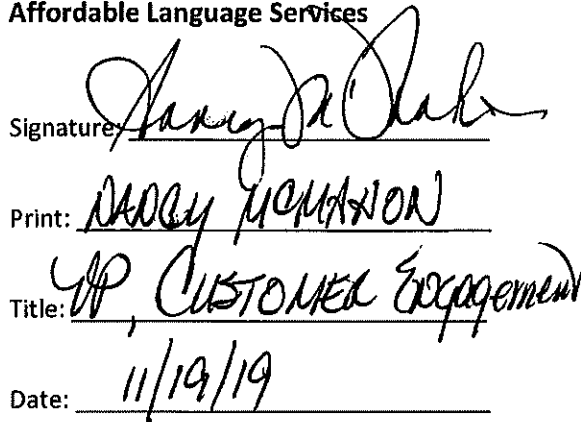 Affordable Language Services
Signature: Nancy McMahon
Print: NANCY MCMAHON
Title: VP, CUSTOMER Engagement
Date: 11/19/19